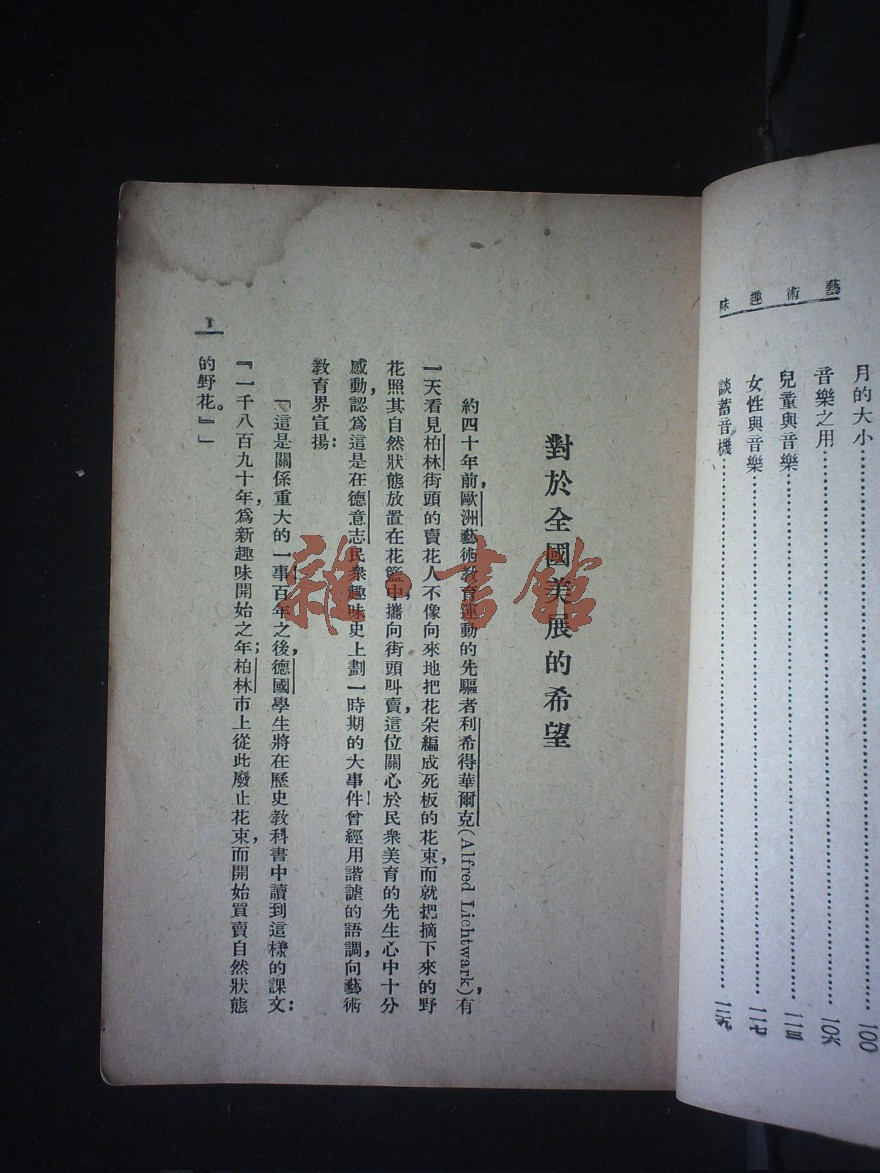 藝術趣味
月的大小……100
音樂之用……一〇六
兒童與音樂……一一三
女性與音樂……一一七
談蓄音機……一二九
對於全國美展的希望
約四十年前,歐洲藝術教育運動的先驅者利希得華爾克(Alfred Lichtwark),有
一天看見柏林街頭的賣花人不像向來地把花朵編成死板的花束,而就把摘下來的野
花照其自然狀態放置在花籃中,攜向街頭叫賣,這位關心於民衆美育的先生心中十分
感動,認爲這是在德意志民衆趣味史上劃一時期的大事件!曾經用諧謔的語調,向藝術
教育界宣揚:
「這是關係重大的一事!百年之後,德國學生將在歷史教科書中讀到這樣的課文:
『一千八百九十年,爲新趣味開始之年;柏林市上從此廢止花束,而開始買賣自然狀態
的野花。』」
1
雜·書館